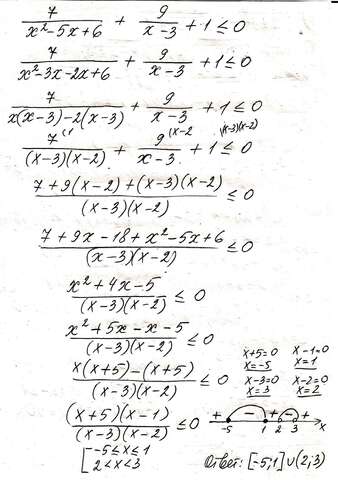 7/(x²-5x+6) + 9/(x-3) + 1 ≤ 0
7/(x²-3x-2x+6) + 9/(x-3) + 1 ≤ 0
7/(x(x-3)-2(x-3)) + 9/(x-3) + 1 ≤ 0
7^(1/((x-3)(x-2)) + 9^(x-2/(x-3) + 1^(x-3)(x-2) ≤ 0
(7+9(x-2)+(x-3)(x-2))/((x-3)(x-2)) ≤ 0
(7+9x-18+x²-5x+6)/((x-3)(x-2)) ≤ 0
(x²+4x-5)/((x-3)(x-2)) ≤ 0
(x²+5x-x-5)/((x-3)(x-2)) ≤ 0
(x(x+5)-(x+5))/((x-3)(x-2)) ≤ 0
x+5=0 x-1=0
x=-5 x=1
x-3=0 x-2=0
x=3 x=2
((x+5)(x-1))/((x-3)(x-2)) ≤ 0
+ - + - +
-5 1 2 3 x
[-5≤x≤1
2<x<3
Ответ: [-5;1]∪(2;3)